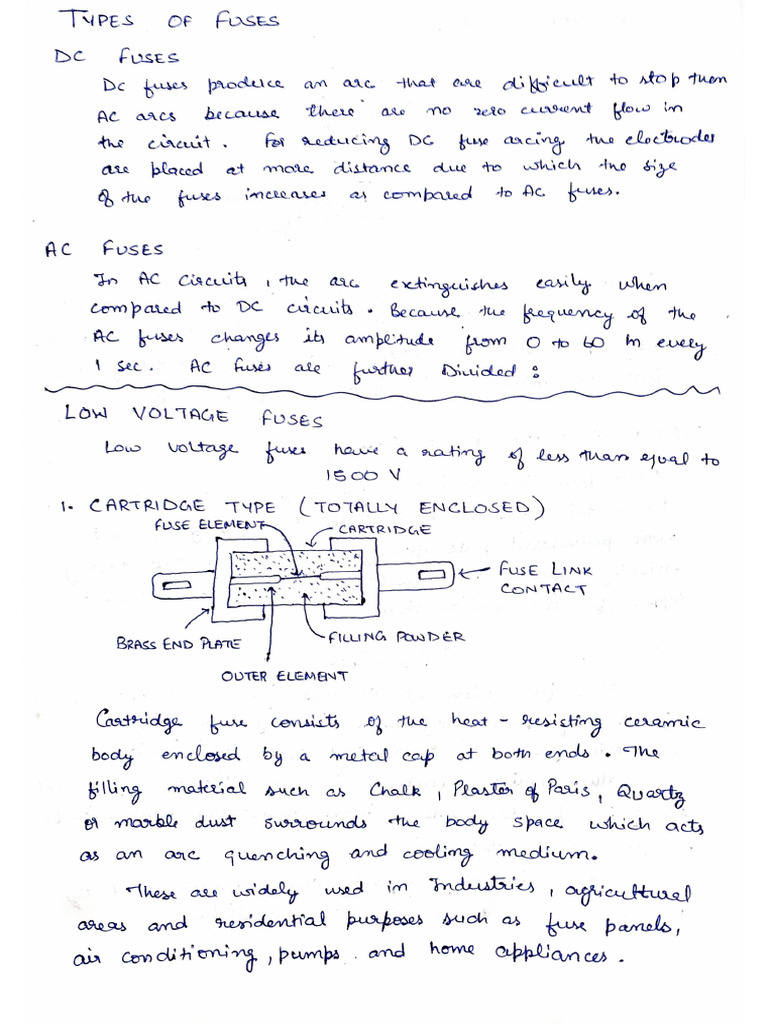 TYPES OF FUSES
DC FUSES
DC fuses produce an arc that are difficult to stop then
AC arcs because there are no zero current flow in
the circuit. For reducing DC fuse arcing the electrodes
are placed at more distance due to which the size
of the fuses increases as compared to AC fuses.
AC FUSES
In AC circuits, the arc extinguishes easily when
compared to DC circuits. Because the frequency of the
AC fuses changes its amplitude from 0 to 60 in every
1 sec. AC fuses are further Divided :
LOW VOLTAGE FUSES
Low voltage fuses have a rating of less than equal to
1500 V
1. CARTRIDGE TYPE (TOTALLY ENCLOSED)
FUSE ELEMENT
CARTRIDGE
FUSE LINK
CONTACT
BRASS END PLATE
FILLING POWDER
OUTER ELEMENT
Cartridge fuse consists of the heat-resisting ceramic
body enclosed by a metal cap at both ends. The
filling material such as Chalk, Plaster of Paris, Quartz
or marble dust surrounds the body space which acts
as an arc quenching and cooling medium.
These are widely used in Industries, agricultural
areas and residential purposes such as fuse panels,
air conditioning, pumps and home appliances.